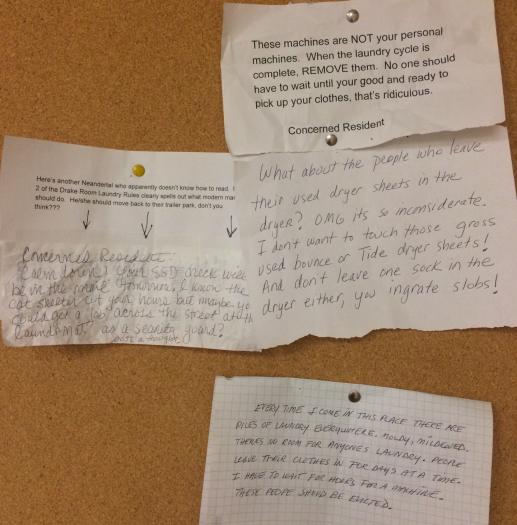 These machines are NOT your personal
machines. When the laundry cycle is
complete, REMOVE them. No one should
have to wait until your good and ready to
pick up your clothes, that's ridiculous.
Concerned Resident
What about the people who leave
their used dryer sheets in the
dryer? OMG its so inconsiderate.
I don't want to touch those gross
used bounce or Tide dryer sheets!
And don't leave one sock in the
dryer either, you ingrate slobs!
Here's another Neandertal who apparently doesn't know how to read.
2 of the Drake Room Laundry Rules clearly spells out what modern mar
should do. He/she should move back to their trailer park, don't you
think???
Concerned Resident
Calm down! Your SSD check will
be in the mail tomorrow. I know the
cat shelter cut your hours but maybe yo
could get a job across the street at th
laundromat as a security guard?
Just a thought
EVERY TIME I COME IN THIS PLACE THERE ARE
PILES OF LAUNDRY EVERYWHERE. MOLDY, MILDEWED.
THERES NO ROOM FOR ANYONES LAUNDRY. PEOPLE
LEAVE THEIR CLOTHES IN FOR DAYS AT A TIME.
I HAVE TO WAIT FOR HOURS FOR A MACHINE.
THESE PEOPLE SHOULD BE EVICTED.